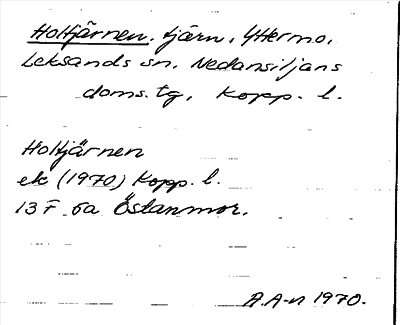 Holtjärnen, tjärn, Yttermo,
Leksands sn, Nedansiljans
doms.tg, Kopp. l.
Holtjärnen
ek (1970) Kopp. l.
13 F 6a Östanmor.
A.A-n 1970.